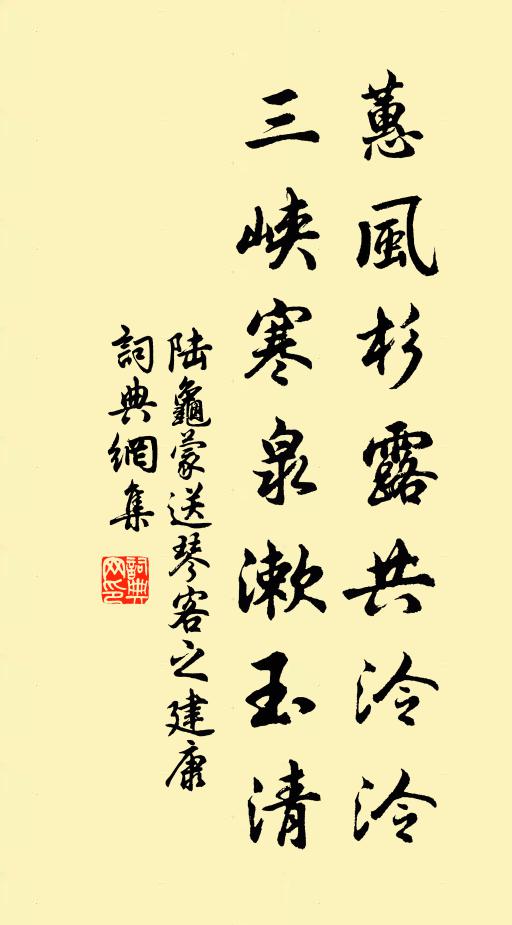 蕙風杉露共泠泠
三峽寒泉漱玉清
陆龜蒙送琴客之建康
詞典網集
詞典网印